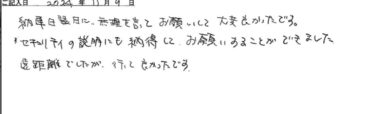 ご記入日 2024年11月9日
納車日当日に、無理を言ってお願いして大変良かったです。
セキュリティの説明にも納得して、お願いすることができました
遠距離でしたが、行って良かったです